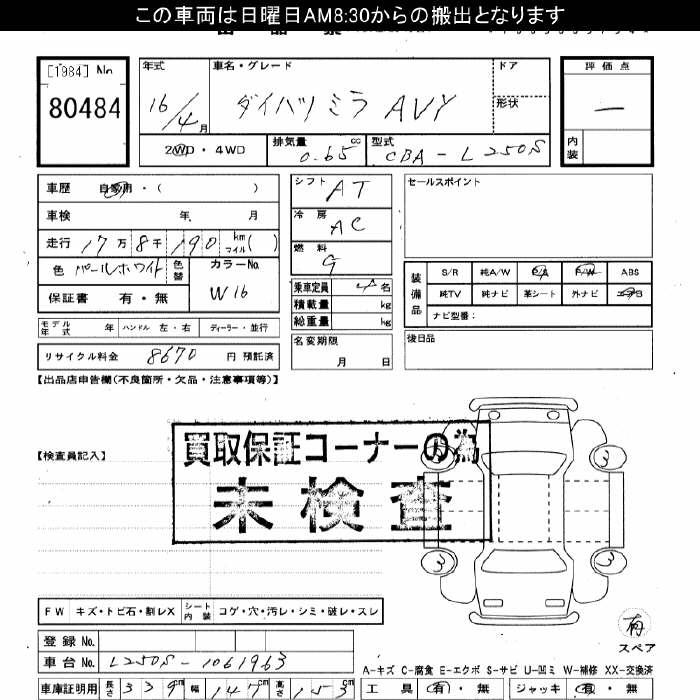 この車両は日曜日AM8:30からの搬出となります
[1984] No
80484
年式 16/4月
車名・グレード ダイハツミラ AVY
ドア
形状
評価点 —
内装
2WD・4WD
排気量 0.65 cc
型式 CBA-L250S
車歴 自家用・( )
車検 年 月
走行 17万8千190 km マイル ( )
色 パールホワイト 色替 カラーNo. W16
保証書 有・無
モデル年式 年 ハンドル 左・右 ディーラー・並行
リサイクル料金 8670 円 預託済
シフト AT
冷房 AC
燃料 G
乗車定員 4名
積載量 kg
総重量 kg
名変期限 月 日
セールスポイント
装備品 S/R 純A/W P/S P/W ABS
純TV 純ナビ 革シート 外ナビ エアB
ナビ型番:
後日品
【出品店申告欄(不良箇所・欠品・注意事項等)】
【検査員記入】
買取保証コーナーの為
未検査
3
3
3
FW キズ・トビ石・割レX シート内装 コゲ・穴・汚レ・シミ・破レ・スレ
有
スペア
登録 No.
車台 No. L250S-1061963
車庫証明用 長さ 339cm 幅 147cm 高さ 153cm
A-キズ C-腐食 E-エクボ S-サビ U-凹ミ W-補修 XX-交換済
工具 有・無 ジャッキ 有・無